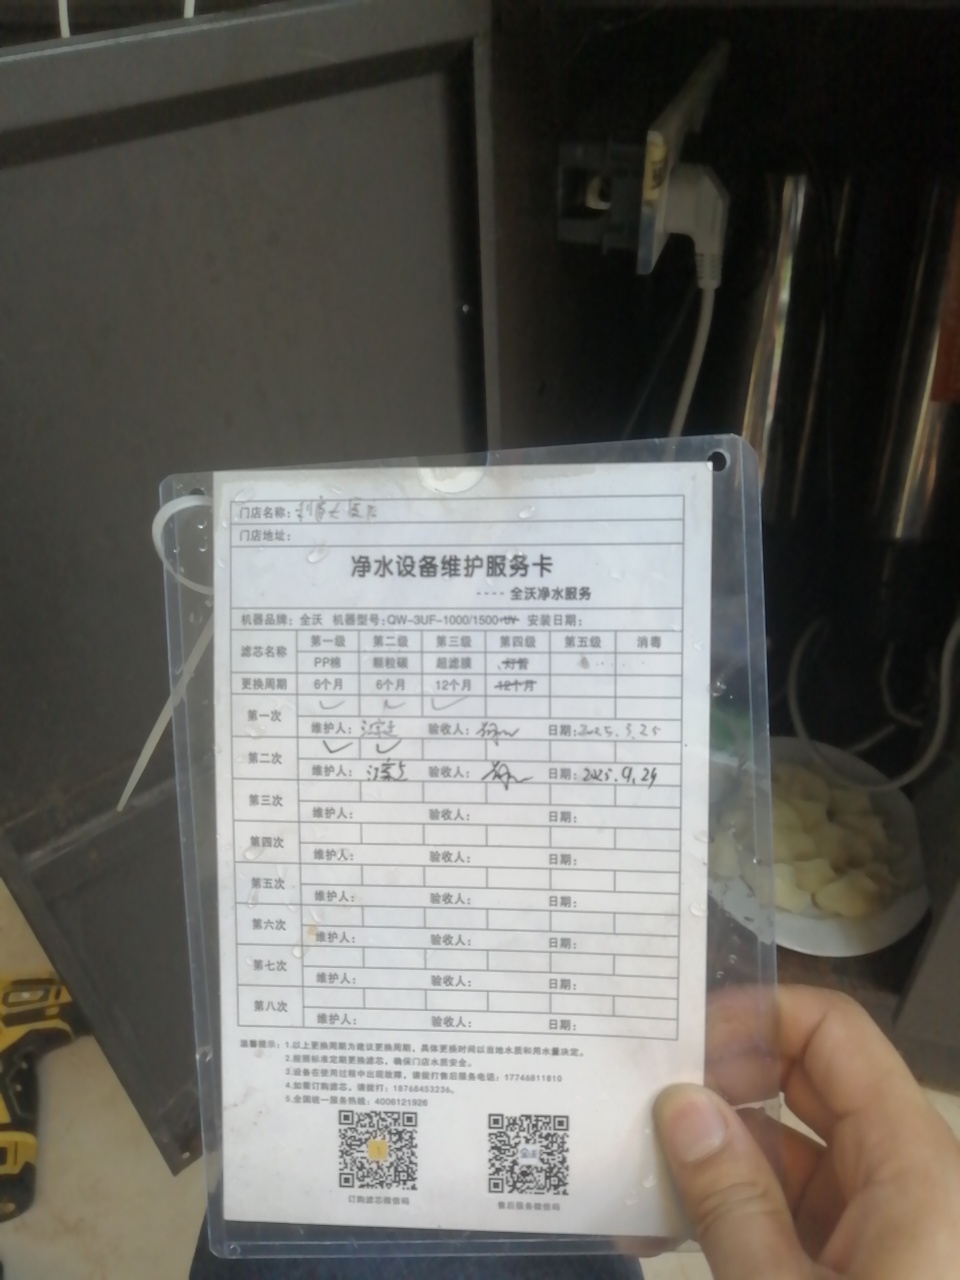 门店名称：
门店地址：
净水设备维护服务卡
---- 全沃净水服务
机器品牌：全沃 机器型号：QW-3UF-1000/1500-UV 安装日期：
滤芯名称 第一级 第二级 第三级 第四级 第五级 消毒
PP棉 颗粒碳 超滤膜 灯管
更换周期 6个月 6个月 12个月 12个月
第一次 ✓ ✓ ✓
维护人： 验收人： 日期：2025.3.25
第二次 ✓ ✓
维护人： 验收人： 日期：2025.9.29
第三次
维护人： 验收人： 日期：
第四次
维护人： 验收人： 日期：
第五次
维护人： 验收人： 日期：
第六次
维护人： 验收人： 日期：
第七次
维护人： 验收人： 日期：
第八次
维护人： 验收人： 日期：
温馨提示：1.以上更换周期为建议更换周期，具体更换时间以当地水质和用水量决定。
2.按照标准定期更换滤芯，确保门店水质安全。
3.设备在使用过程中出现故障，请拨打售后服务电话：17746811810
4.如需订购滤芯，请拨打：18768453236。
5.全国统一服务热线：4006121926
订购滤芯微信码 售后服务微信码